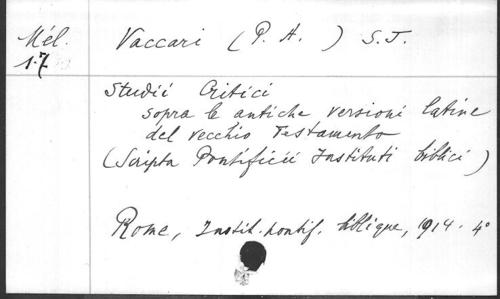 Mél.
1.7
Vaccari (P. A.) S.J.
Studii Critici
sopra le antiche versioni latine
del vecchio Testamento
(Scripta Pontificii Instituti biblici)
Rome, Instit. pontif. biblique, 1914. 4°